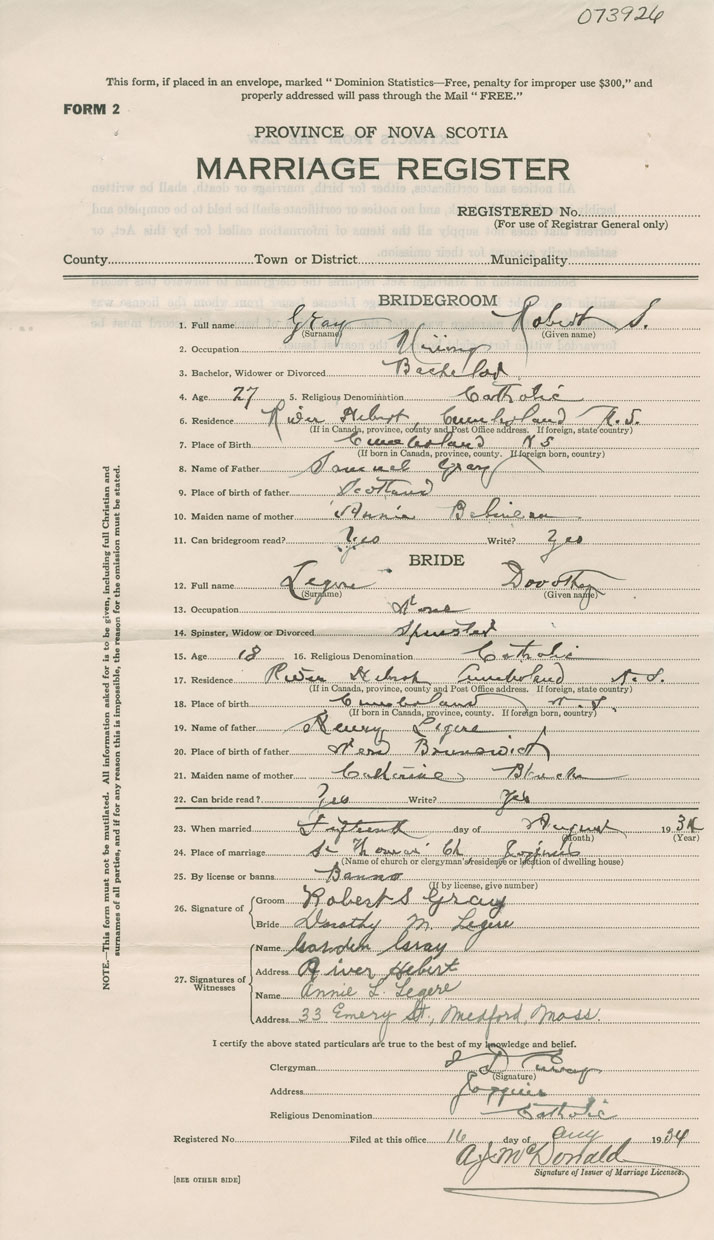 073926
This form, if placed in an envelope, marked " Dominion Statistics—Free, penalty for improper use $300," and
properly addressed will pass through the Mail " FREE."
FORM 2
PROVINCE OF NOVA SCOTIA
MARRIAGE REGISTER
REGISTERED No.
(For use of Registrar General only)
County Town or District Municipality
BRIDEGROOM
1. Full name Gray Robert S.
(Surname) (Given name)
2. Occupation Mining
3. Bachelor, Widower or Divorced Bachelor
4. Age 27 5. Religious Denomination Catholic
6. Residence River Hebert, Cumberland N.S.
(If in Canada, province, county and Post Office address. If foreign, state country)
7. Place of Birth Cumberland N S
(If born in Canada, province, county. If foreign born, country)
8. Name of Father Samuel Gray
9. Place of birth of father Scotland
10. Maiden name of mother Annie
11. Can bridegroom read? Yes Write? Yes
BRIDE
12. Full name Legere Dorothy
(Surname) (Given name)
13. Occupation None
14. Spinster, Widow or Divorced Spinster
15. Age 18 16. Religious Denomination Catholic
17. Residence River Hebert Cumberland N.S.
(If in Canada, province, county and Post Office address. If foreign, state country)
18. Place of birth Cumberland N.S.
(If born in Canada, province, county. If foreign born, country)
19. Name of father Henry Legere
20. Place of birth of father New Brunswick
21. Maiden name of mother Catherine
22. Can bride read? Yes Write? Yes
23. When married Fifteenth day of August 1934
(Month) (Year)
24. Place of marriage St Thomas' Ch Joggins
(Name of church or clergyman's residence or location of dwelling house)
25. By license or banns Banns
(If by license, give number)
26. Signature of Groom Robert S Gray
Bride Dorothy M. Legere
27. Signatures of Witnesses Name Gordon Gray
Address River Hebert
Name Annie L. Legere
Address 33 Emery St., Medford, Mass.
I certify the above stated particulars are true to the best of my knowledge and belief.
Clergyman
(Signature)
Address Joggins
Religious Denomination Catholic
Registered No. Filed at this office 16 day of Aug 1934
A J McDonald
Signature of Issuer of Marriage Licenses.
[SEE OTHER SIDE]
NOTE.—This form must not be mutilated. All information asked for is to be given, including full Christian and
surnames of all parties, and if for any reason this is impossible, the reason for the omission must be stated.